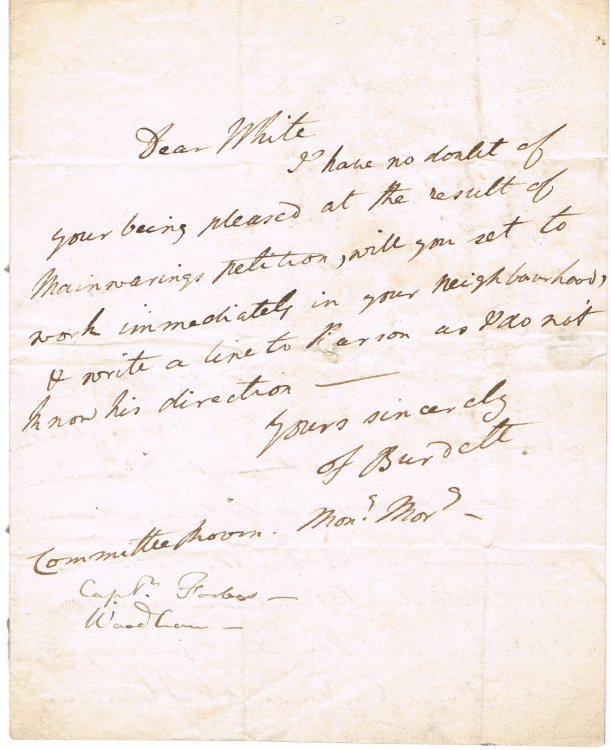 Dear White
I have no doubt of
your being pleased at the result of
Mainwarings petition, will you set to
work immediately in your neighbourhood,
& write a line to Parson as I do not
know his direction —
Yours sincerely
Burdett.
Committee Room. Mon.g Mor.g —
Capt.n Forbes —